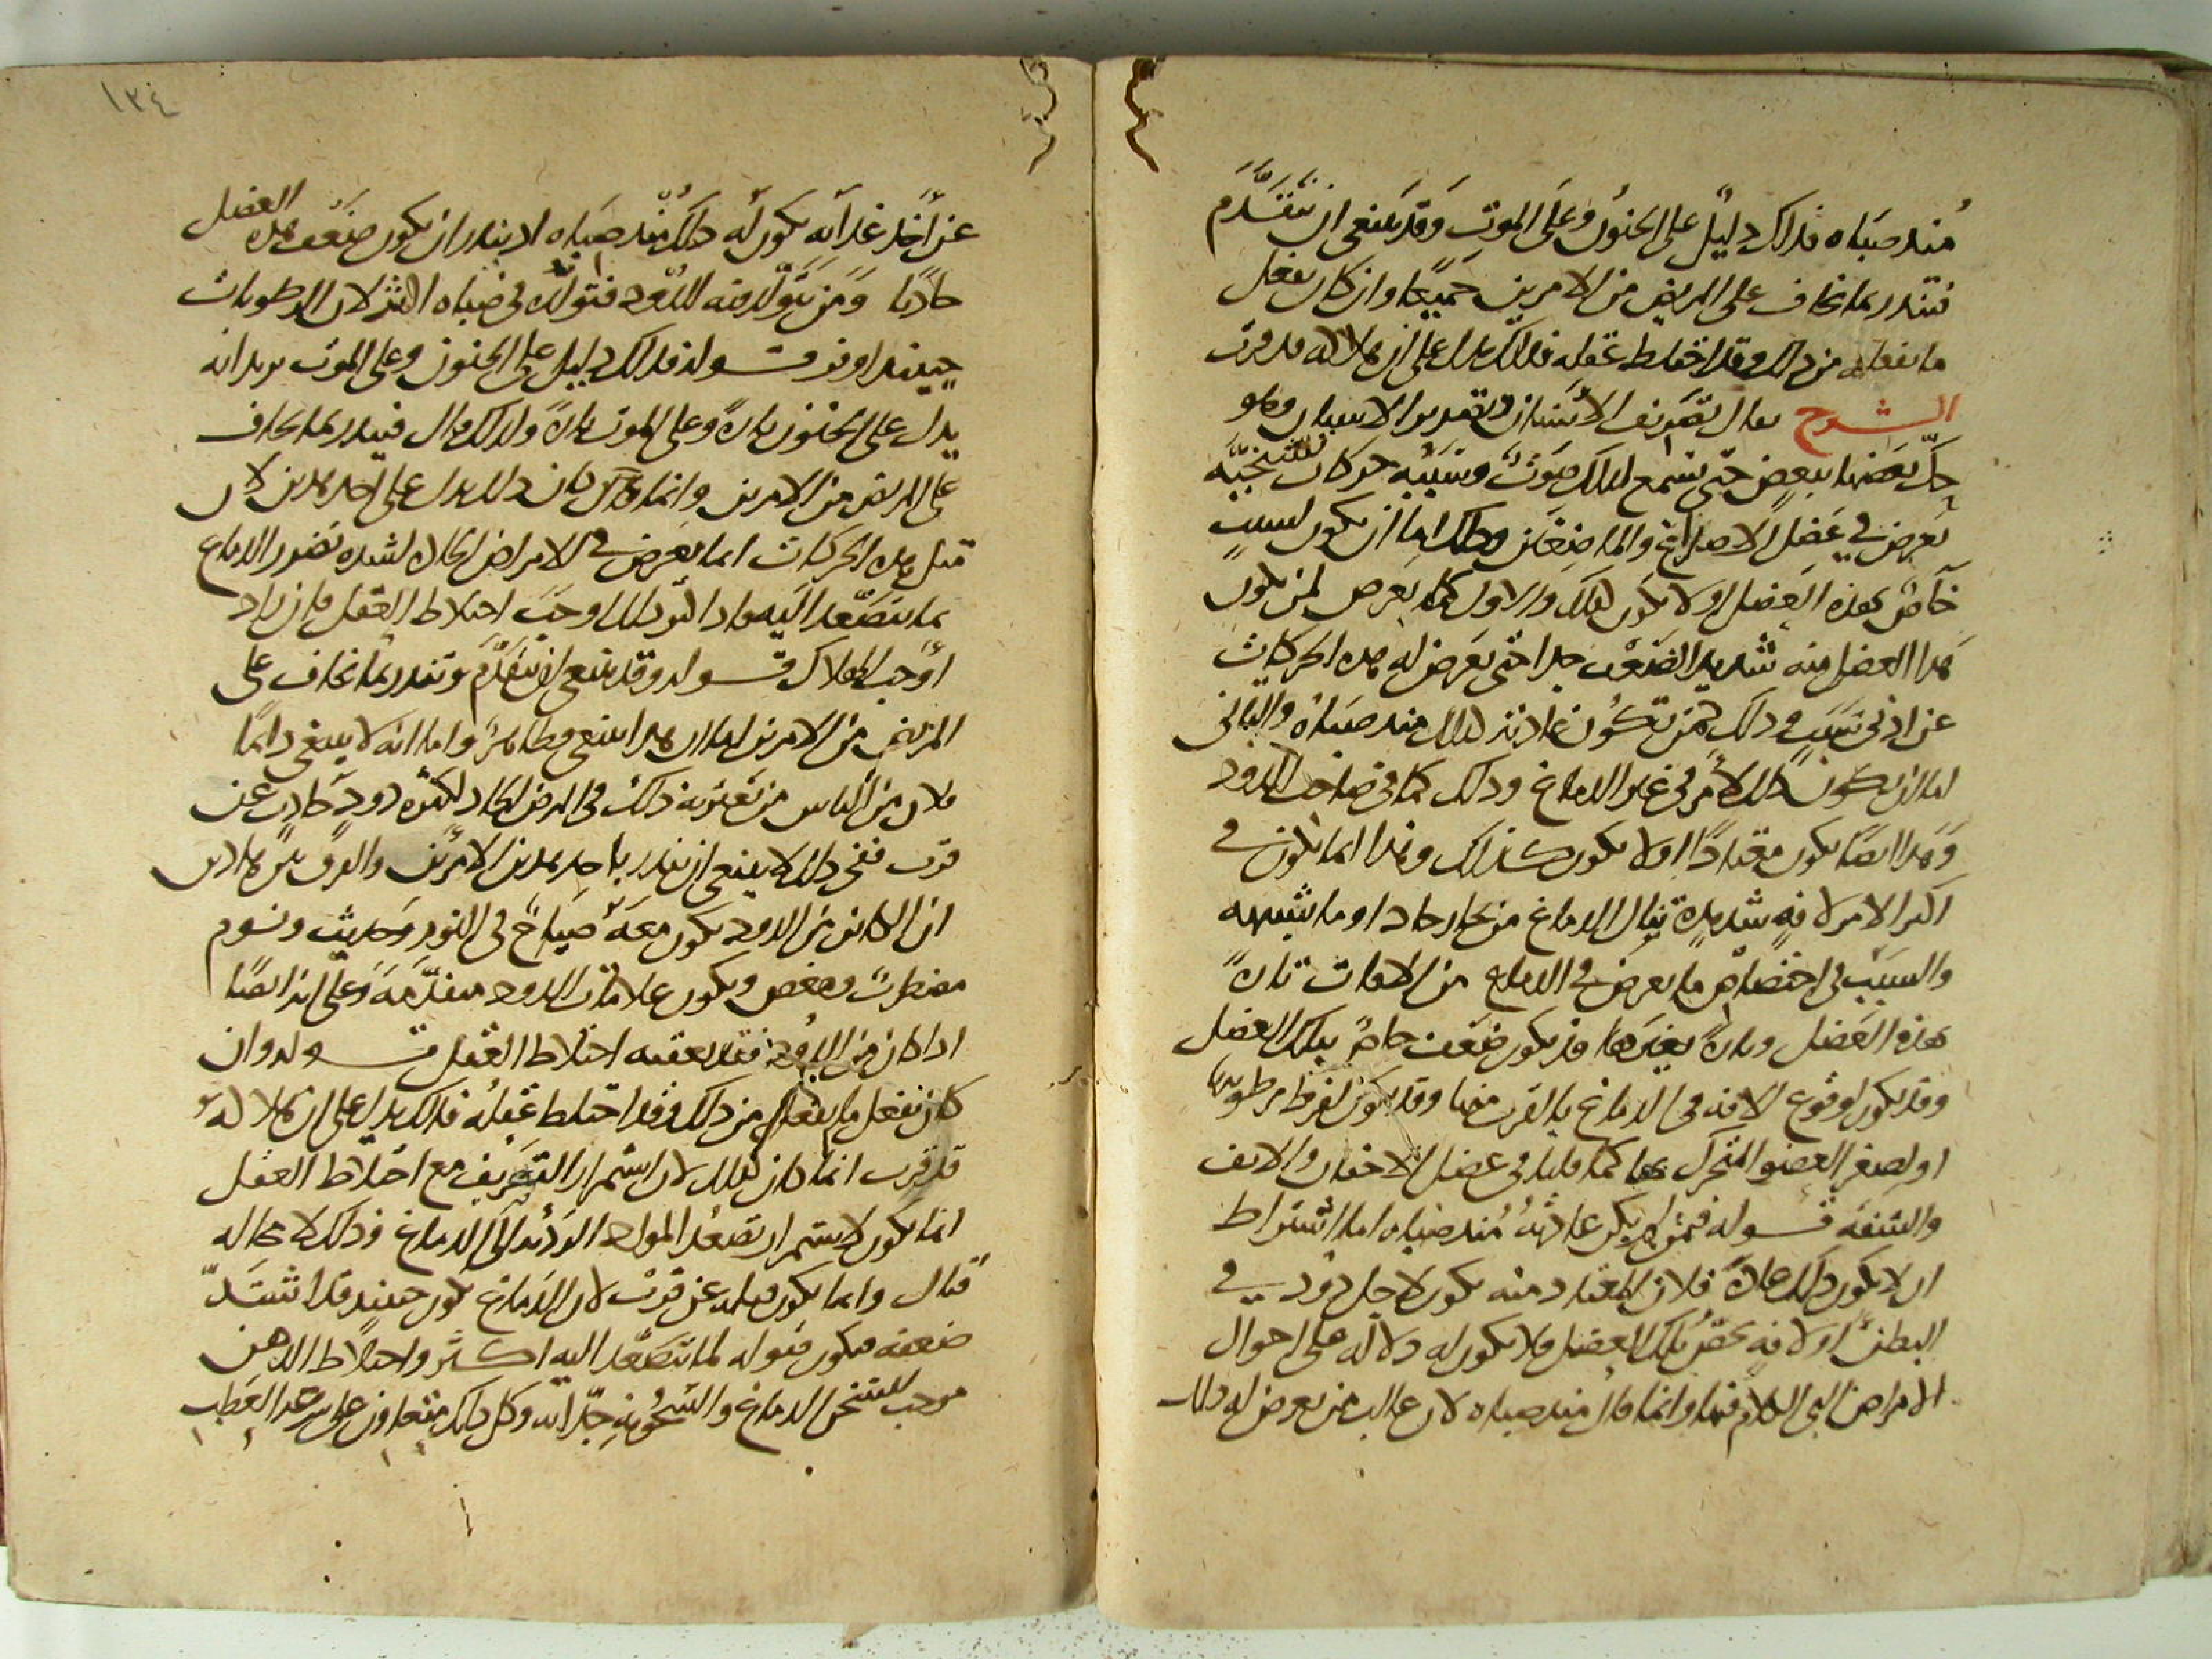 منذ صباه فذلك دليل على الجنون وعلى الموت وقد ينبغي ان تتقدم
فتنذر بما تخاف على المريض من الامرين جميعا وان كان يفعل
ما يفعله من ذلك وقد اختلط عقله فذلك يدل على ان هلاكه قد قرب
الشرح يقال تصريف الاسنان وتصرير الاسنان وهو
حك بعضها ببعض حتى تسمع لذلك صوت وسببه حركات تشنجية
تعرض في عضل الاصداغ والماضغين وذلك اما ان يكون لسبب
خاص بهذه العضل او لا يكون كذلك والاول كما يعرض لمن يكون
هذا العضل منه شديد الضعف جدا حتى يعرض له هذه الحركات
عن ادنى سبب وذلك كمن تكون عادته كذلك منذ صباه والثاني
اما ان يكون ذلك لامر في غير الدماغ وذلك كما في صاحب الدود
وهذا ايضا يكون معتادا او لا يكون كذلك وهذا انما يكون في
اكثر الامر لافة شديدة تنال الدماغ من بخار حاد او ما يشبهه
والسبب في اختصاص ما يعرض في الدماغ من الافات تارة
بهذه العضل وتارة بغيرها قد يكون ضعف خاص بتلك العضل
وقد يكون لوقوع الافة في الدماغ بالقرب منها وقد يكون لفرط رطوبتها
او لصغر العضو المتحرك بها كما قلنا في عضل الاجفان والانف
والشفة قوله فمن لم يكن عادته منذ صباه اما اشتراط
ان لا يكون ذلك عادة فلان المعتاد منه يكون لاجل دود في
البطن او لافة تخص تلك العضل فلا يكون له دلالة على احوال
الامراض التي الكلام فيها وانما قال منذ صباه لان غالب من يعرض له ذلك
١٣٤
عن اخذ غذائه يكون له ذلك منذ صباه اذ يندر ان يكون ضعف هذه العضل
حادثا ومن يتولد فيه الدود فتولده في صباه اكثر لان الرطوبات
حينئذ اوفر قوله فذلك دليل على الجنون وعلى الموت يريد انه
يدل على الجنون تارة وعلى الموت تارة ولذلك قال فينذر بما يخاف
على المريض من الامرين وانما كان ذلك يدل على احد هذين لان
مثل هذه الحركات انما تعرض في الامراض الحادة لشدة تضرر الدماغ
بما يتصعد اليه واذا كثر ذلك اوجب اختلاط العقل فان زاد
اوجب الهلاك قوله وقد ينبغي ان تتقدم وتنذر بما تخاف على
المريض من الامرين اما ان هذا ينبغي فظاهر واما انه لا ينبغي دائما
فلان من الناس من تعتريه ذلك في المرض الحاد لكثرة دود حادث عن
قرب ففي ذلك لا ينبغي ان ينذر باحد هذين الامرين والفرق بين هاذين
ان الكائن من الدود يكون معه صياح في النوم وحديث ونوم
مضطرب ومغص ويكون علامات الدود متقدمة وعلى انه ايضا
اذا كان من الدود فقد يعقبه اختلاط العقل قوله وان
كان يفعل ما يفعل من ذلك وقد اختلط عقله فذلك يدل على ان هلاكه
قد قرب انما كان كذلك لان استمرار التصريف مع اختلاط العقل
انما يكون لاستمرار تصعد المواد الرديئة الى الدماغ وذلك لا محالة
قتال وانما يكون قتله عن قرب لان الدماغ يكون حينئذ قد اشتد
ضعفه فيكون قبوله لما يتصعد اليه اكثر واختلاط الذهن
موجب لتسخن الدماغ والسخونة جذابة وكل ذلك متعاون على سرعة العطب